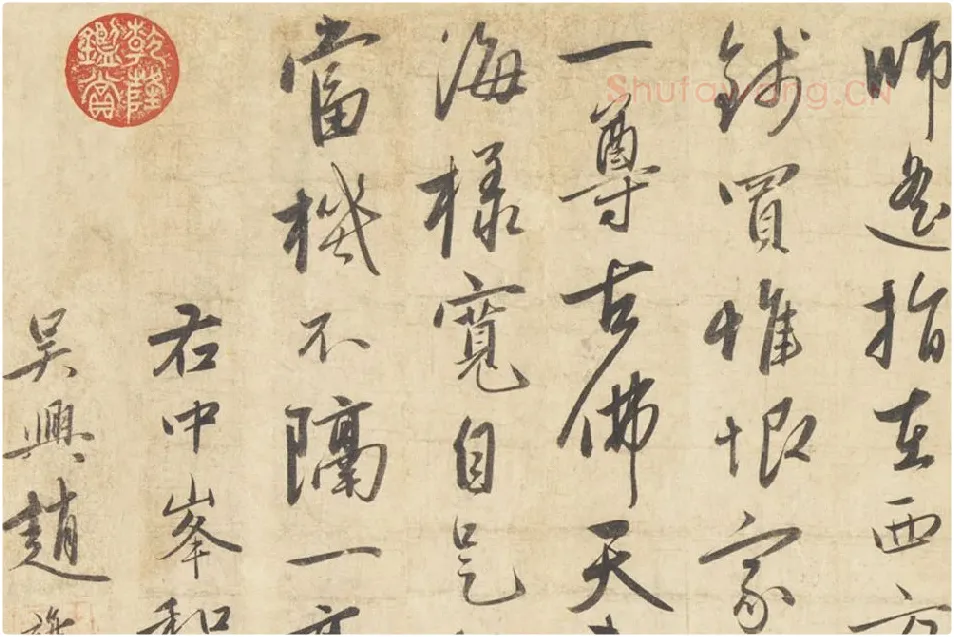 師遙指在西方
錢買惟恨家
一尊古佛天
海樣寬自是
當機不隔一
右中峯和
吳興趙
乾隆鑑賞
Shufawang.CN